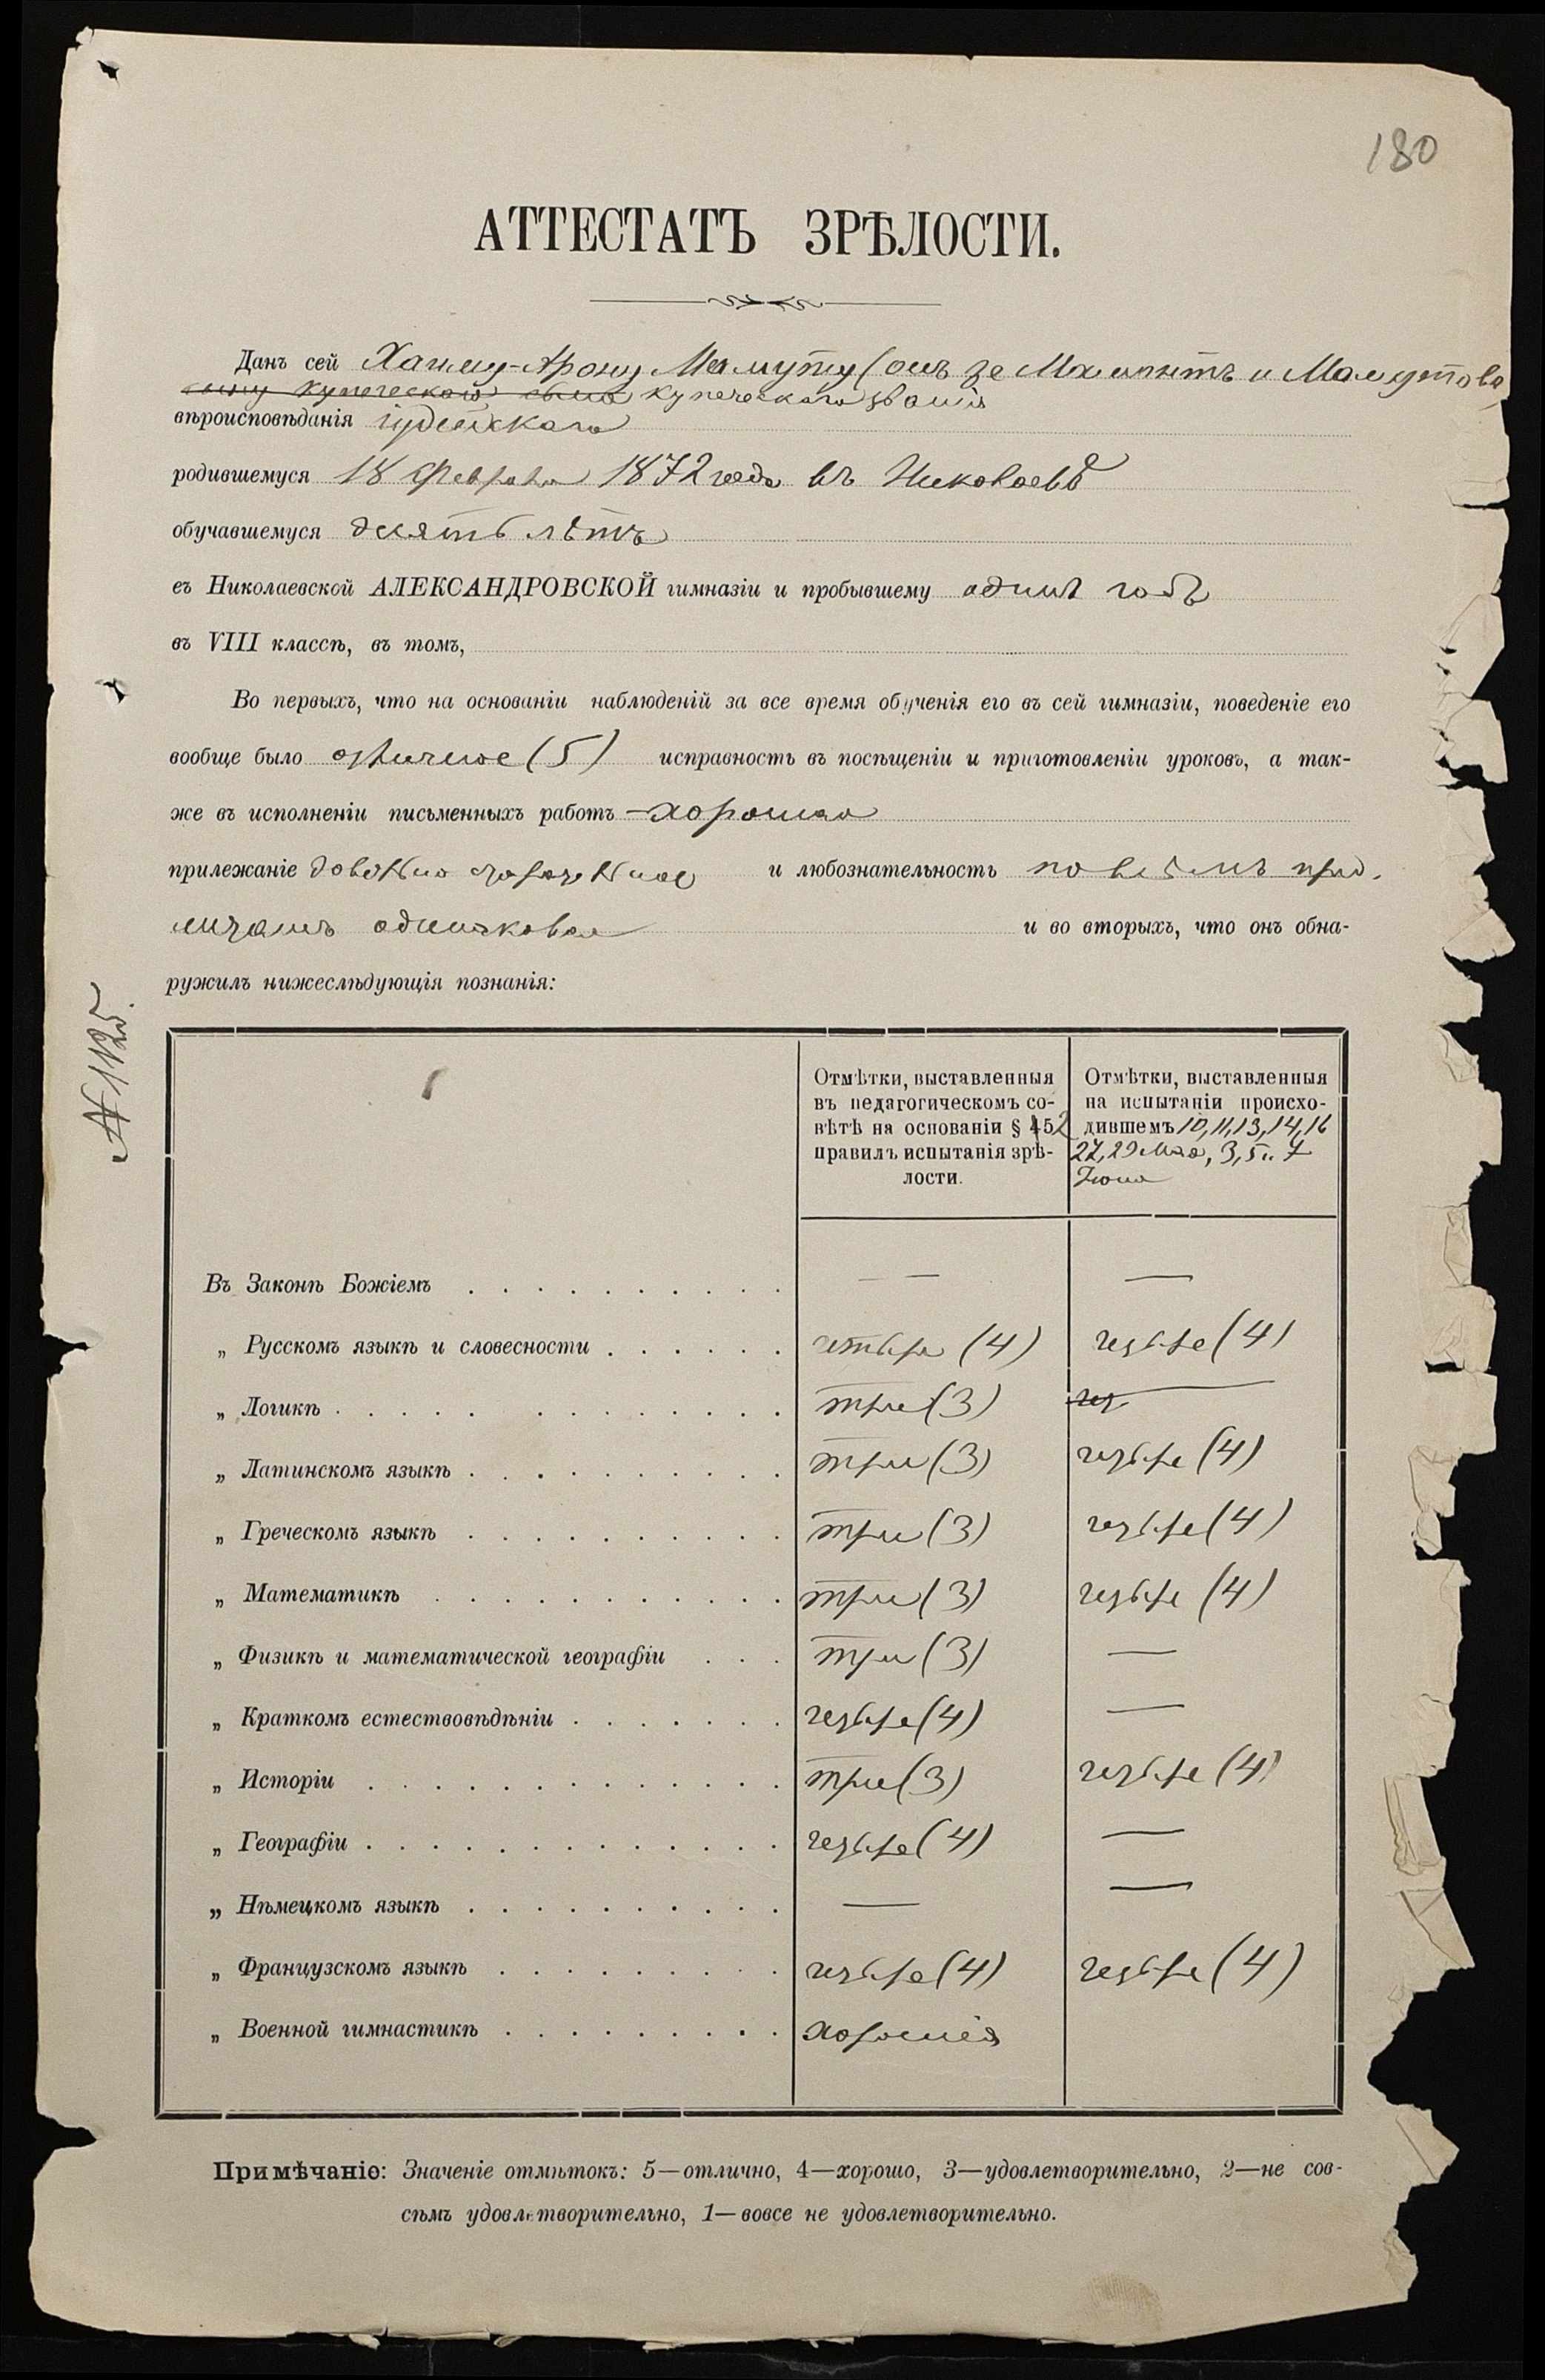 180
АТТЕСТАТЪ ЗРѢЛОСТИ.
Данъ сей Хаиму-Арону Мамуту (онъ же Мамонтъ и Мамутовъ)
сыну купеческаго сына купеческаго званія
вѣроисповѣданія іудейскаго
родившемуся 18 Февраля 1872 года въ Николаевѣ
обучавшемуся десять лѣтъ
въ Николаевской АЛЕКСАНДРОВСКОЙ гимназіи и пробывшему одинъ годъ
въ VIII классѣ, въ томъ,
Во первыхъ, что на основаніи наблюденій за все время обученія его въ сей гимназіи, поведеніе его
вообще было отличное (5) исправность въ посѣщеніи и приготовленіи уроковъ, а так-
же въ исполненіи письменныхъ работъ – хорошая
прилежаніе довольно старательное и любознательность по всѣмъ пред-
метамъ одинаковая и во вторыхъ, что онъ обна-
ружилъ нижеслѣдующія познанія:
№ 1125.
Отмѣтки, выставленныя въ педагогическомъ со-вѣтѣ на основаніи § 52 правилъ испытанія зрѣ-лости.
Отмѣтки, выставленныя на испытаніи происхо-дившемъ 10, 11, 13, 14, 16 27, 29 Мая, 3, 5 и 7 Іюня
Въ Законѣ Божіемъ — —
„ Русскомъ языкѣ и словесности четыре (4) четыре (4)
„ Логикѣ три (3) —
„ Латинскомъ языкѣ три (3) четыре (4)
„ Греческомъ языкѣ три (3) четыре (4)
„ Математикѣ три (3) четыре (4)
„ Физикѣ и математической географіи три (3) —
„ Краткомъ естествовѣдѣніи четыре (4) —
„ Исторіи три (3) четыре (4)
„ Географіи четыре (4) —
„ Нѣмецкомъ языкѣ — —
„ Французскомъ языкѣ четыре (4) четыре (4)
„ Военной гимнастикѣ хорошія
Примѣчаніе: Значеніе отмѣтокъ: 5—отлично, 4—хорошо, 3—удовлетворительно, 2—не сов-
сѣмъ удовлетворительно, 1—вовсе не удовлетворительно.